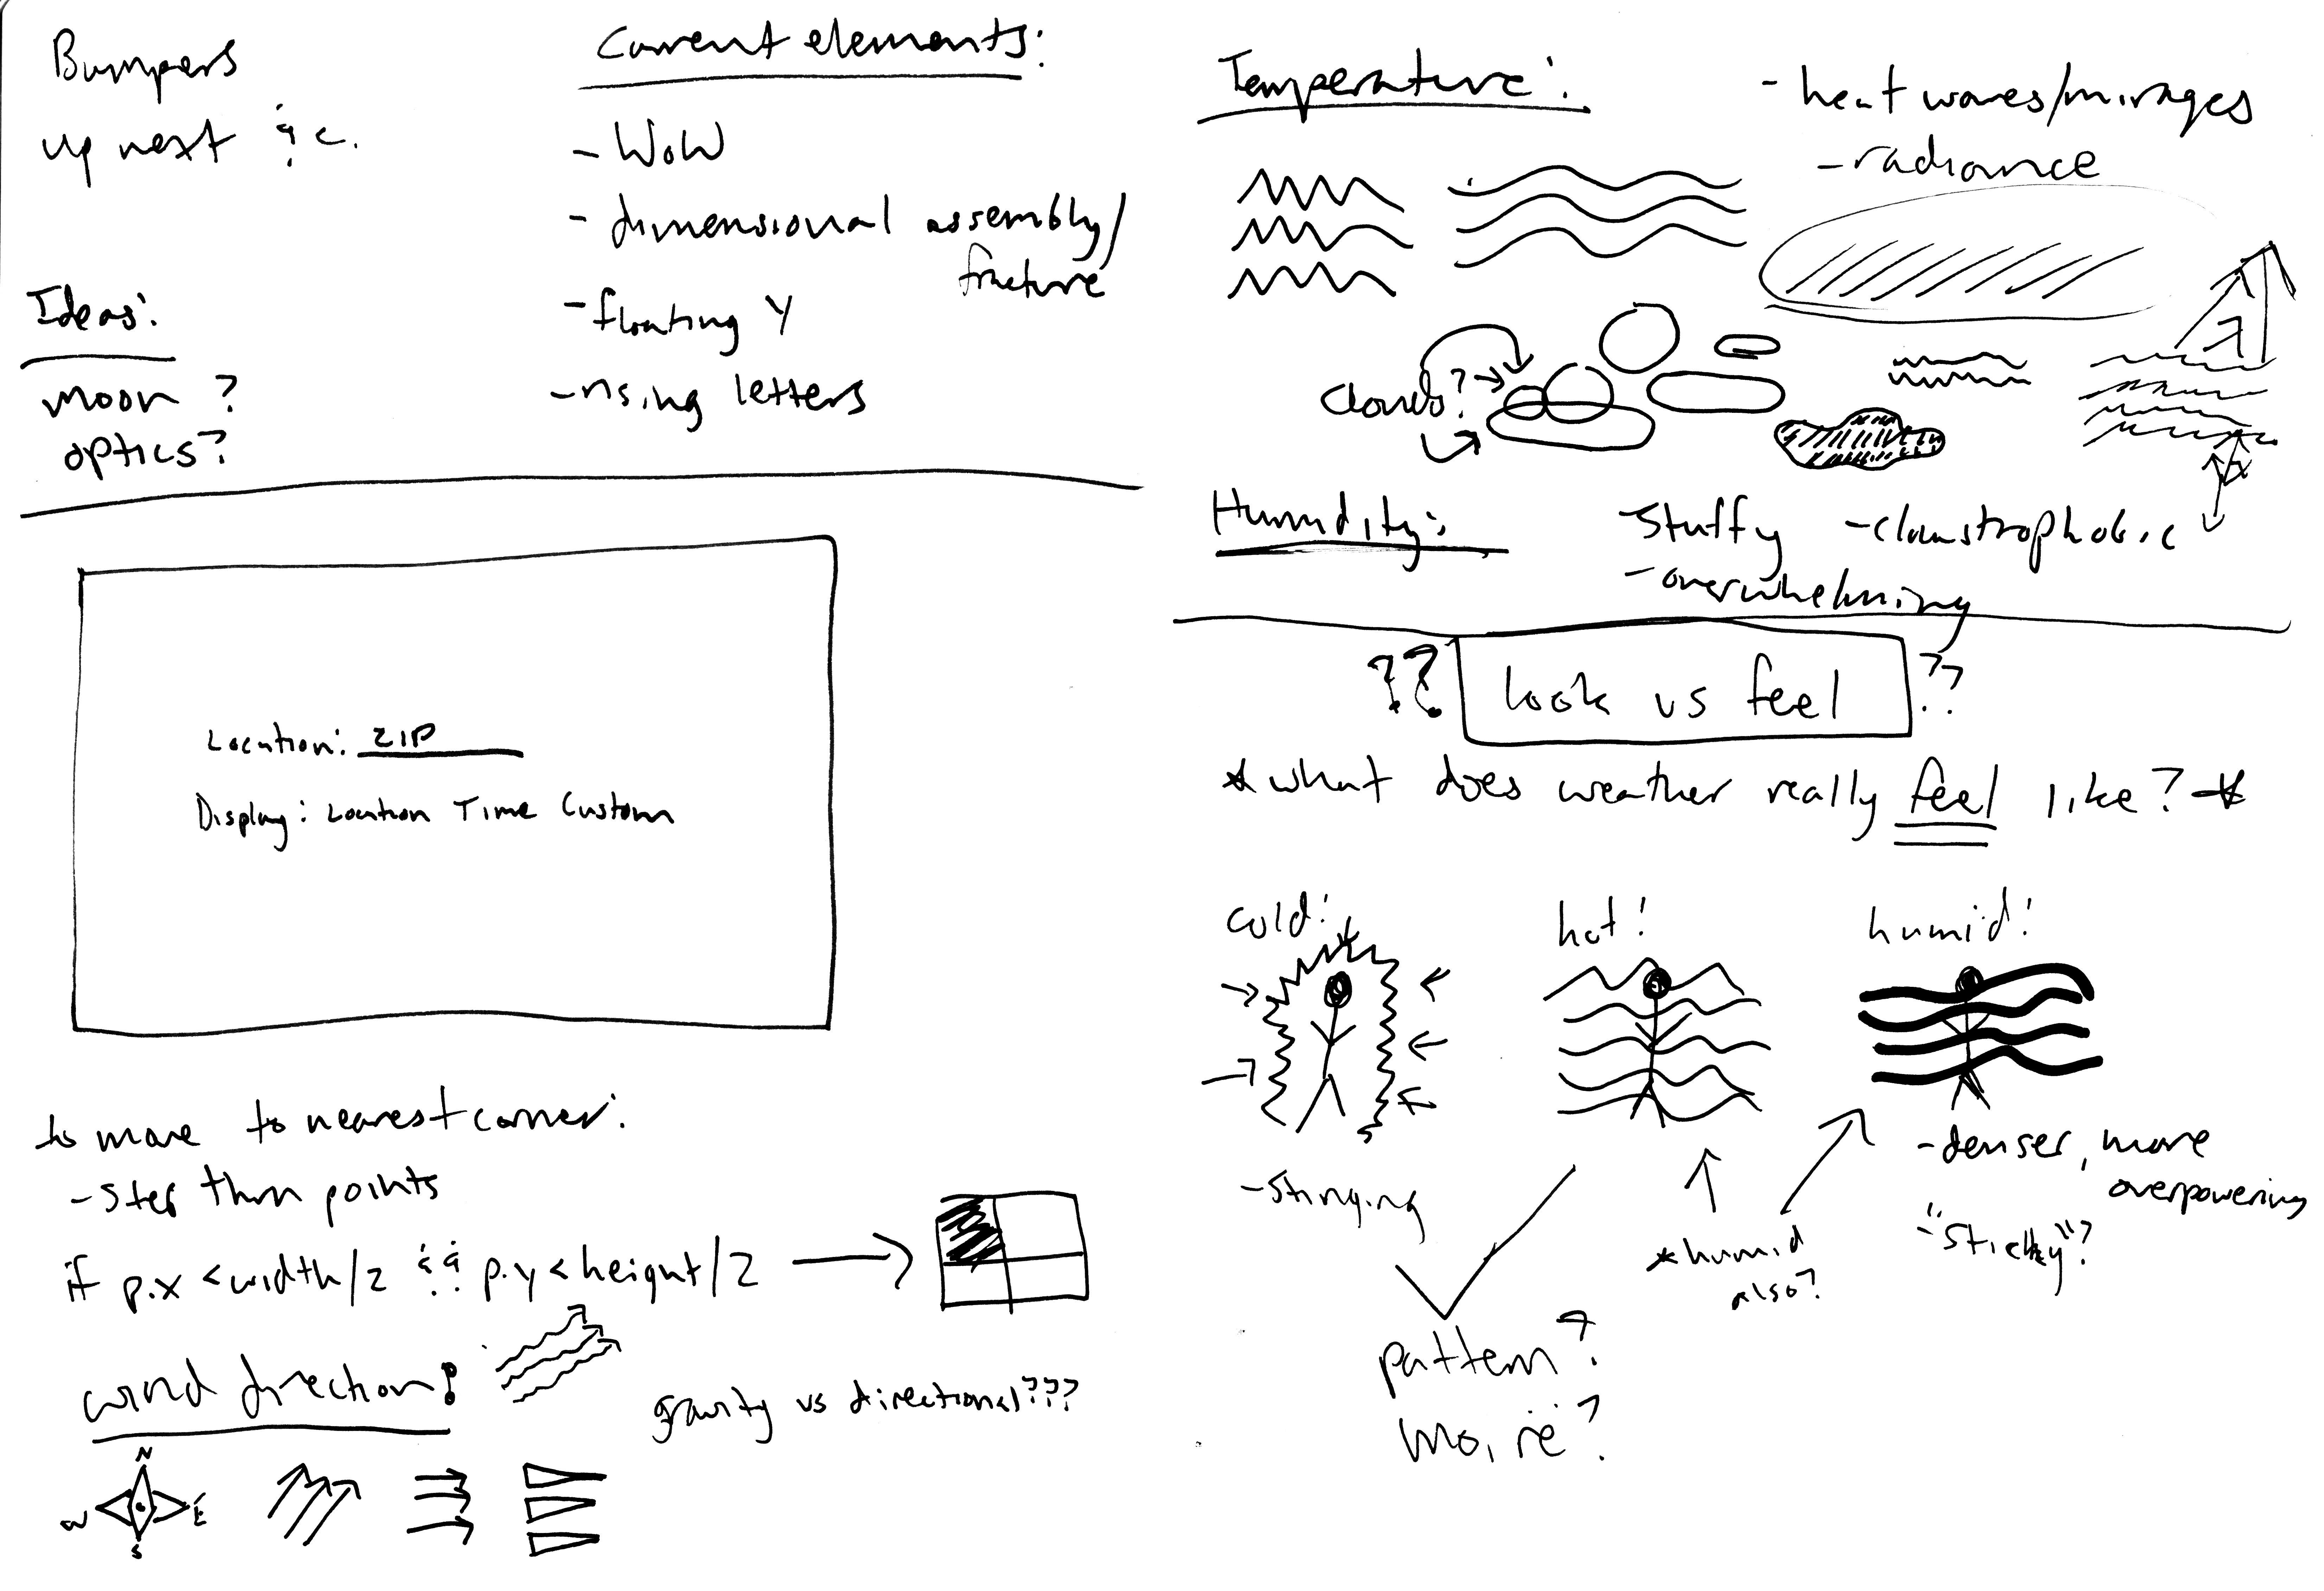 Bumpers
up next &c.
Ideas:
moon ?
optics?
Current elements:
- WoW
- dimensional assembly/
fracture
- floating Y
- rising letters
Location: ZIP
Display: Location Time Custom
to move to nearest corner:
- step thru points
if p.x < width/2 && p.y < height/2
wind direction:
gravity vs directional???
N
W E
S
Temperature:
- heat waves/mirages
- radiance
clouds?
Humidity:
Stuffy - claustrophobic
- overwhelming
?? look vs feel ??
* what does weather really feel like? *
cold:
hot!
humid!
- stinging
* humid
also?
- denser, more
overpowering
- "sticky"?
pattern?
moiré?